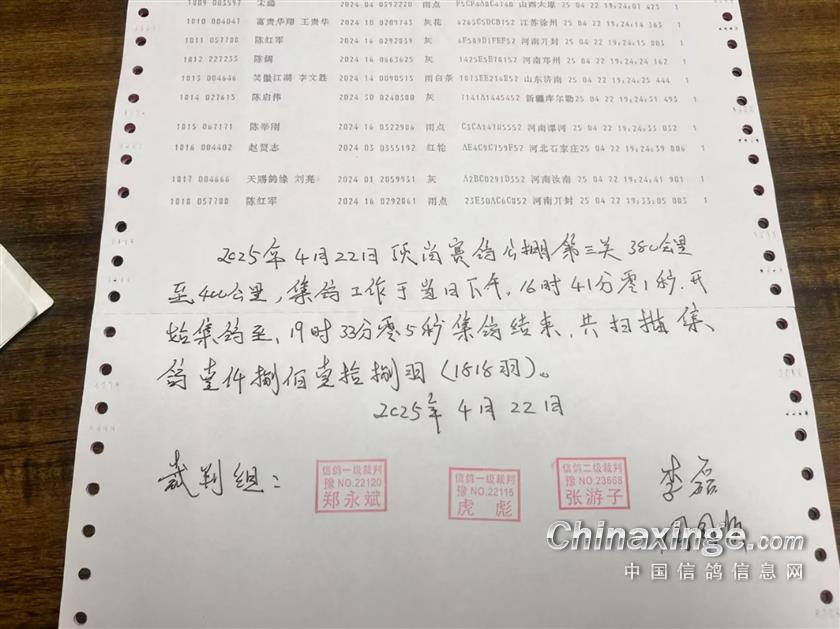 宋嗣 2024 04 0592220 雨点 山西太原 25 04 22 19:24:07 425 1
1810 004047 富贵华翔 王贵华 2024 10 0209743 灰花 江苏徐州 25 04 22 19:24:14 365 1
1811 057788 陈红军 2024 16 灰 河南开封 25 04 22 19:24:15 803 1
1812 227233 陈阔 2024 16 0663625 灰 河南郑州 25 04 22 19:24:24 162 1
1813 004646 笑傲江湖 李文胜 2024 14 0090515 雨白条 山东济南 25 04 22 19:24:25 444 1
1814 027615 陈启伟 2024 30 0240380 灰 新疆库尔勒 25 04 22 19:24:31 493 1
1815 067171 陈举刚 2024 16 0322986 雨点 河南漯河 25 04 22 19:24:33 032 1
1816 004402 赵贤志 2024 03 0355192 红轮 河北石家庄 25 04 22 19:24:39 806 1
1817 004666 天赐鸽缘 刘亮 2024 01 2059931 灰 A2BC0291D352 河南汝南 25 04 22 19:24:41 901 1
1818 057788 陈红军 2024 16 0292861 雨点 23E30AC6C852 河南开封 25 04 22 19:33:05 803 1
2025年4月22日顶尚赛鸽公棚第三关380公里
至400公里，集鸽工作于当日下午，16时41分零1秒.开
始集鸽至，19时33分零5秒集鸽结束，共扫描集
鸽壹仟捌佰壹拾捌羽（1818羽）。
2025年4月22日
裁判组：
信鸽一级裁判
豫NO.22120
郑永斌
信鸽一级裁判
豫NO.22115
虎彪
信鸽二级裁判
豫NO.23668
张游子
李磊
Chinaxinge.com
中国信鸽信息网